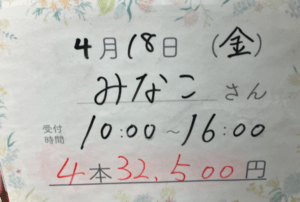 4月18日 (金)
みなこ さん
受付時間 10:00~16:00
4本32,500円